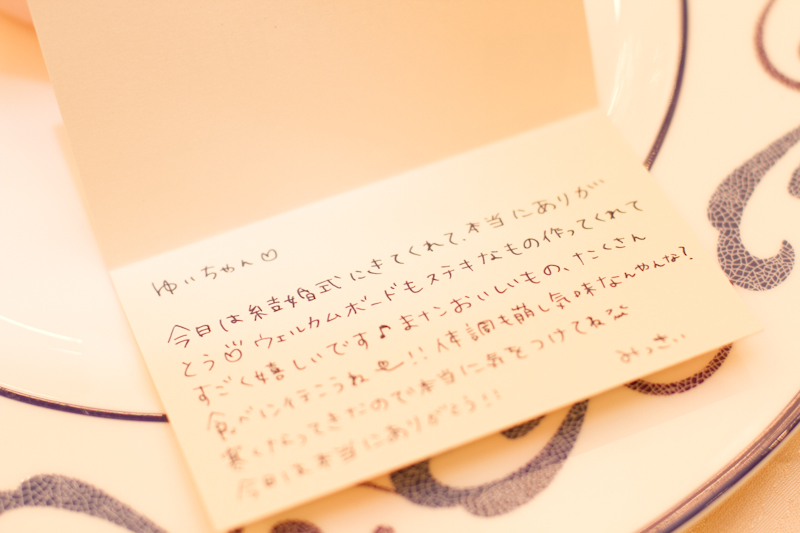 ゆいちゃん♡
今日は結婚式にきてくれて、本当にありが
とう♡ウェルカムボードもステキなもの作ってくれて
すごく嬉しいです♪またおいしいもの、たくさん
食べに行こうね!!体調も崩し気味なんやんな?
寒くなってきたので本当に気をつけてね
今日は本当にありがとう!!
みっきぃ